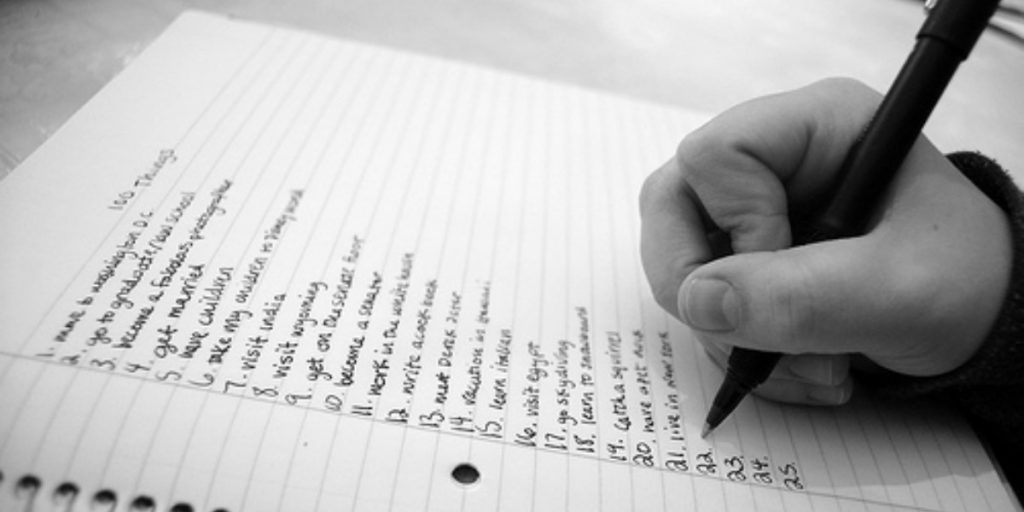 100 Things
1. move to washington D.C
2. go to graduate/law school
3. become a fabulous photographer
4. get married
5. have children
6. take my children to disney world
7. visit India
8. visit wyoming
9. get on the senate floor
10. become a senator
11. work in the white house
12. write a cookbook
13. meet Derek Jeter
14. vacation in
15. learn italian
16. visit egypt
17. go skydiving
18. learn to snowboard
19. catch a squirrel
20. have a pet duck
21. live in New York
22
23.
24.
25.